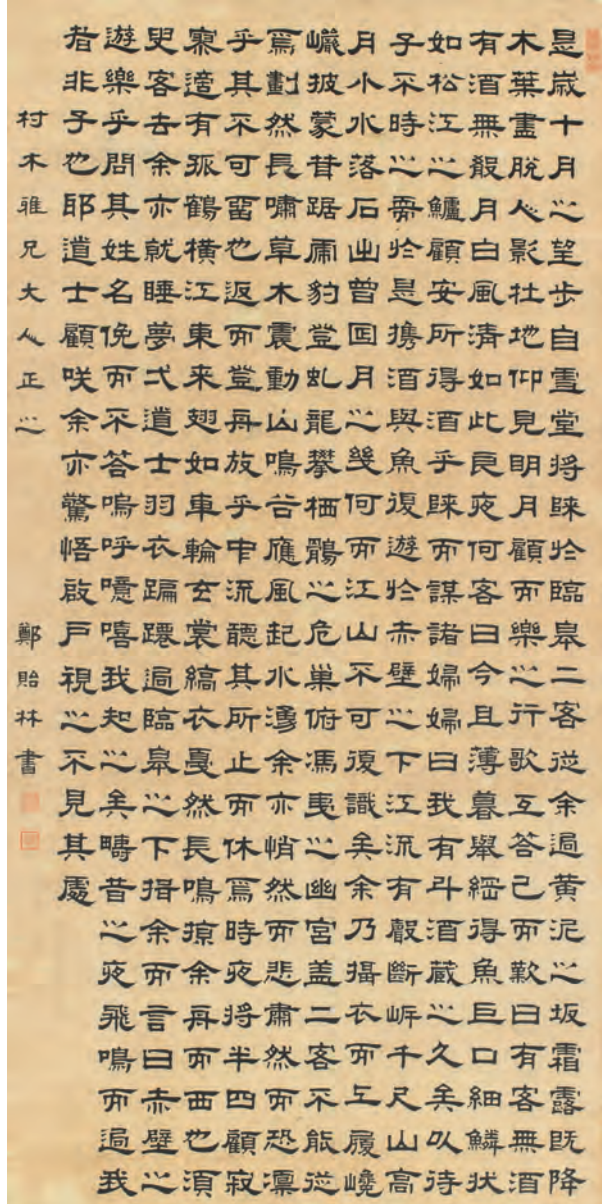 是歲十月之望步自雪堂將歸於臨皋二客從余過黃泥之坂霜露既降
木葉盡脫人影在地仰見明月顧而樂之行歌互答已而歎曰有客無酒
有酒無殽月白風清如此良夜何客曰今且薄暮舉網得魚巨口細鱗狀
如松江之鱸顧安所得酒乎歸而謀諸婦婦曰我有斗酒藏之久矣以待
子不時之需於是攜酒與魚復遊於赤壁之下江流有聲斷岸千尺山高
月小水落石出曾日月之幾何而江山不可復識矣余乃攝衣而上履巉
巖披蒙茸踞虎豹登虬龍攀栖鶻之危巢俯馮夷之幽宮盖二客不能從
焉劃然長嘯草木震動山鳴谷應風起水湧余亦悄然而悲肅然而恐凜
乎其不可留也返而登舟放乎中流聽其所止而休焉時夜將半四顧寂
寥適有孤鶴橫江東来翅如車輪玄裳縞衣戛然長鳴掠余舟而西也須
臾客去余亦就睡夢弌道士羽衣蹁躚過臨皋之下揖余而言曰赤壁之
遊樂乎問其姓名俛而不答嗚呼噫嘻我知之矣疇昔之夜飛鳴而過我
者非子也耶道士顧咲余亦驚悟啟戶視之不見其處
村木雅兄大人正之 鄭貽林書